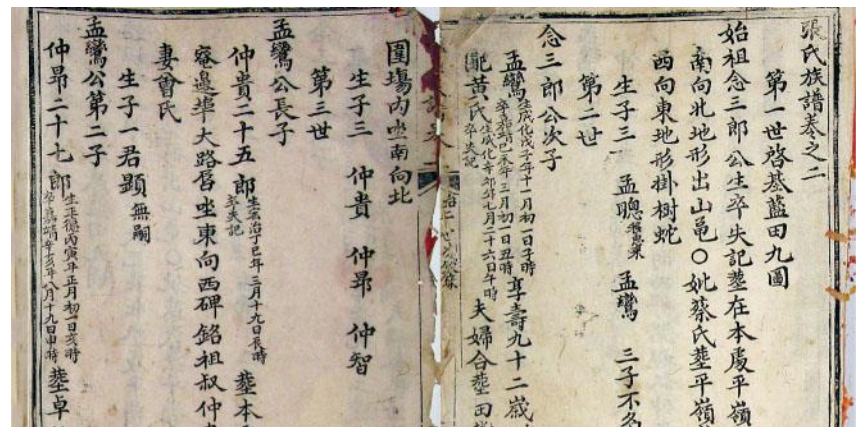 張氏族譜卷之二
第一世啓基藍田九圖
始祖念三郎公生卒失記塟在本處平嶺
南向北地形出山黽〇妣蔡氏塟平嶺
西向東地形掛樹蛇
生子三 孟聰 孟鸞 三子不名
第二世
念三郎公次子
孟鸞生成化戊子年十一月初一日子時卒嘉靖己未年三月初一日丑時享壽九十二歲
黃氏生成化辛卯年七月二十六日午時卒失記 夫婦合塟田
圍塲内坐南向北
生子三 仲貴 仲昂 仲智
第三世
孟鸞公長子
仲貴二十五郎生弘治丁巳年三月十九日辰時卒失記 塟本
寮邉埠大路唇坐東向西碑銘祖叔仲
妻曾氏
生子一君顕無嗣
孟鸞公第二子
仲昂二十七郎生正德丙寅年正月初一日亥時卒嘉靖辛亥年八月十九日申時 塟卓